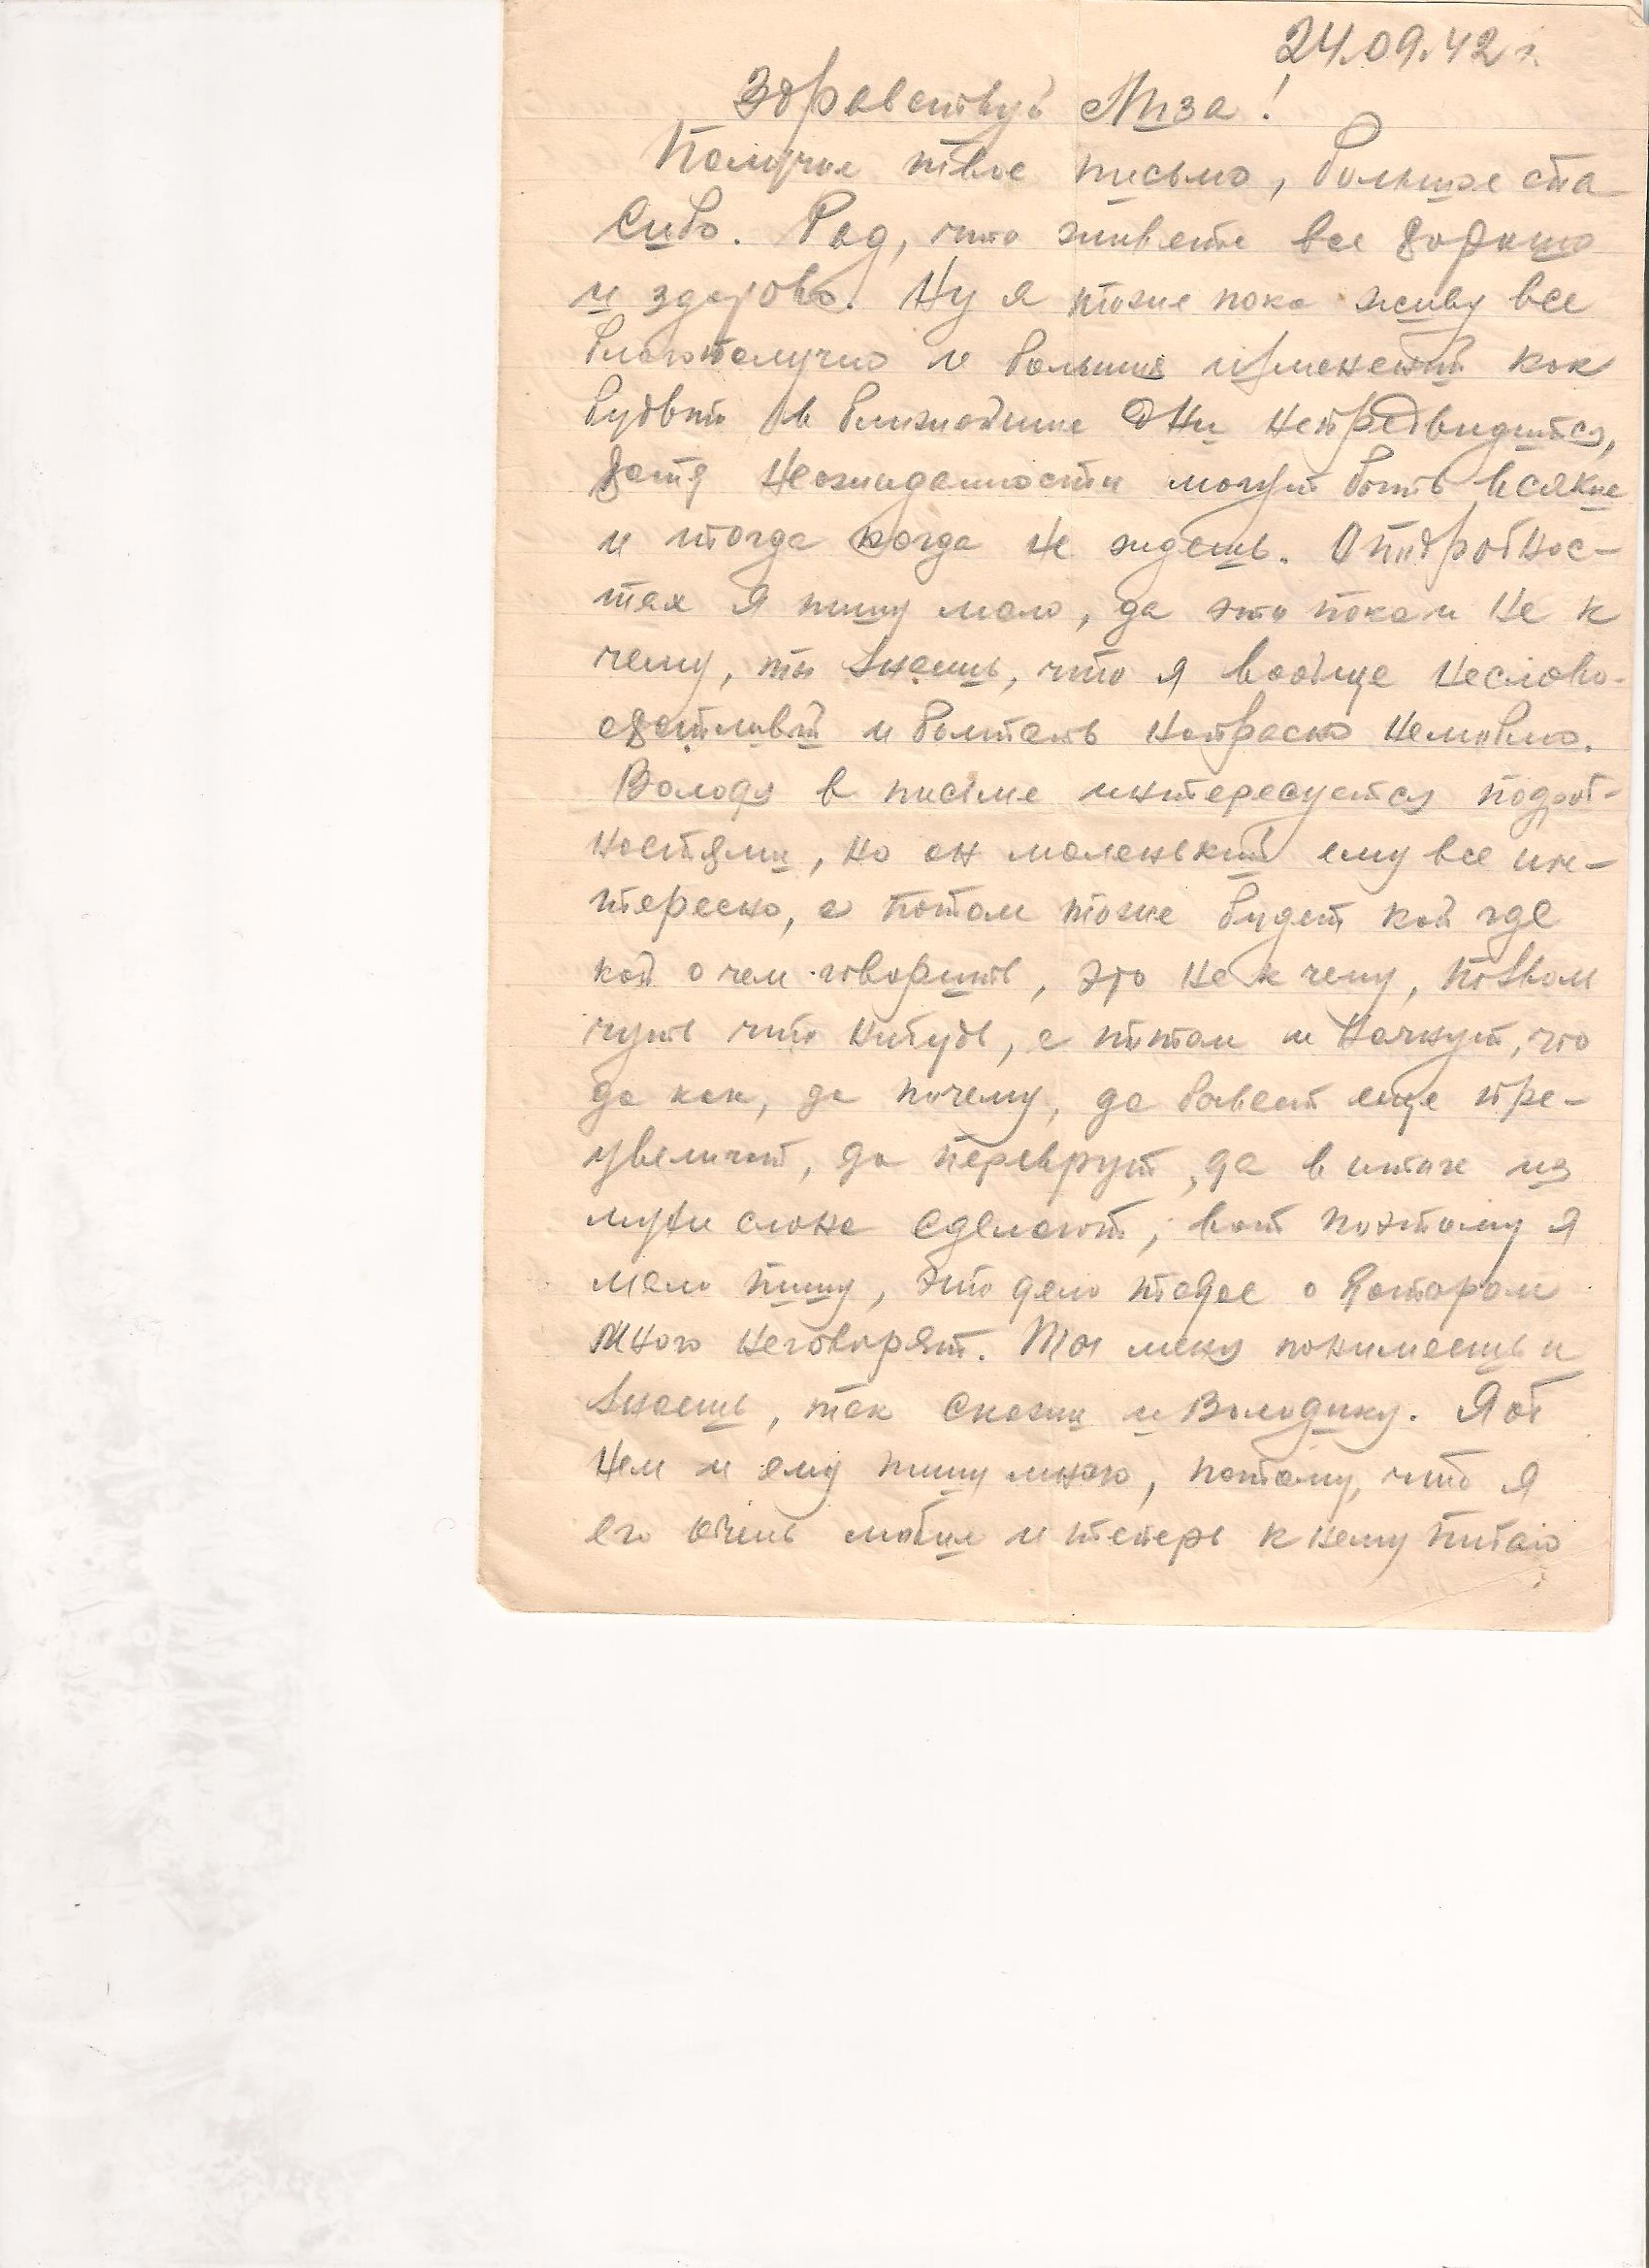 24.09.42 г.
Здравствуй Лиза!
Получил твое письмо, большое спа-
сибо. Рад, что живете все хорошо
и здорово. Ну я тоже пока живу все
благополучно и больших изменений как
будто в ближайшие дни непредвидится,
хотя неожиданности могут быть всякие
и тогда когда не ждешь. О подробнос-
тях я пишу мало, да это пока и не к
чему, ты знаешь, что я вообще неслово-
охотливый и болтать напрасно нелюблю.
Володя в письме интересуется подроб-
ностями, но он маленький ему все ин-
тересно, а потом тоже будет кой где
кой о чем говорить, это не к чему,
чуть что нибудь, а потом и начнут, что
да как, да почему, да бавят еще пре-
увеличат, да переврут, да в итоге из
мухи слона сделают, вот поэтому я
мало пишу, это дело такое о котором
много неговорят. Ты меня понимаешь и
знаешь, так скажи и Володику. Я об
нем и ему пишу много, потому, что я
его очень любил и теперь к нему питаю